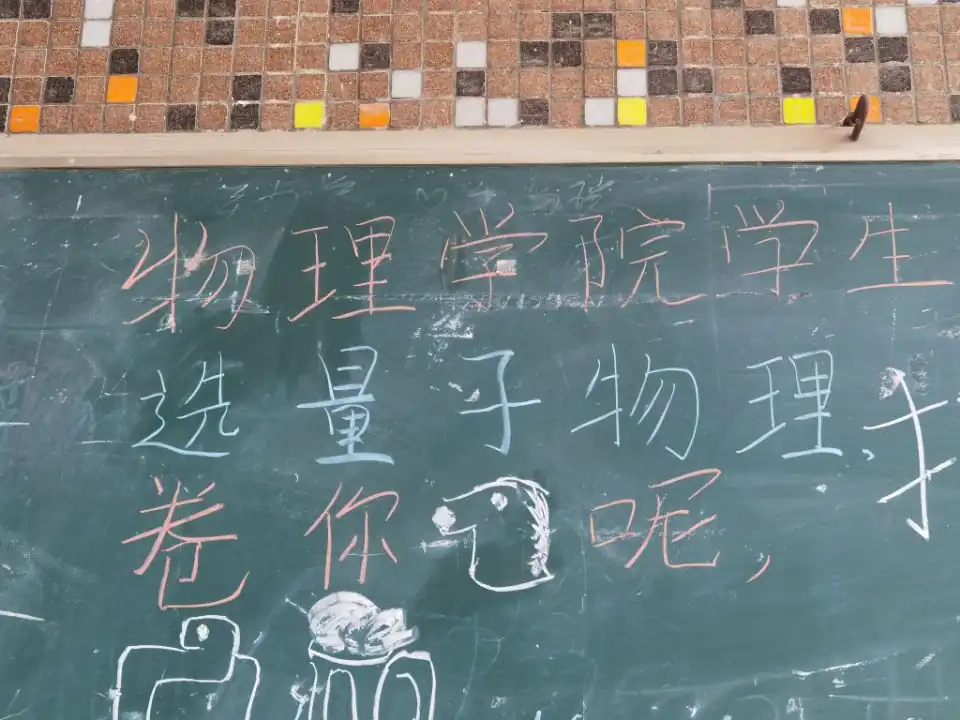 物理学院学生
选量子物理
卷你呢,